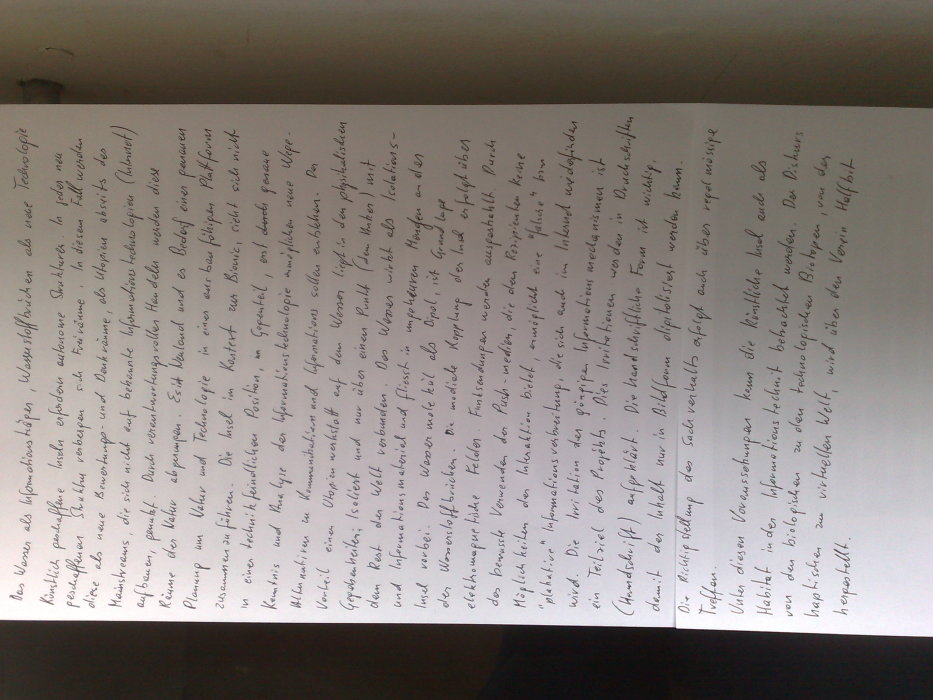 Das Wasser als Informationsträger, Wasserstoffbrücken als neue Technologie
Künstlich geschaffene Inseln erfordern autonome Strukturen. In jeder neu
geschaffenen Struktur verbergen sich Freiräume, in diesem Fall werden
diese als neue Bewertungs- und Denkräume, als Utopien abseits des
Mainstreams, die sich nicht auf bekannte Informationstechnologien (Internet)
aufbauen, genutzt. Durch verantwortungsvolles Handeln werden diese
Räume der Natur abgerungen. Es ist und es Bedarf einer genauen
Planung um Natur und Technologie in einer ausbaufähigen Plattform
zusammenzuführen. Die Insel in Kontext zur Bionic, sieht sich nicht
in einer technikfeindlichen Position, im Gegenteil, erst durch genaue
Kenntnis und Analyse der Informationstechnologie ermöglichen neue Wege.
Alternativen in Kommunikation und Informations sollen entstehen. Der
Vorteil einer Utopienwerkstatt auf dem Wasser liegt in den physikalischen
Gegebenheiten; isoliert und nur über einen Punkt (dem Anker) mit
dem Rest der Welt verbunden. Das Wasser wirkt als Isolations-
und Informationsmaterial und fliesst in ungeheuren Mengen an der
Insel vorbei. Das Wassermolekül als Dipol, ist Grundlage
der Wasserstoffbrücken. Die mediale Kopplung der Insel erfolgt über
elektromagnetische Felder. Funksendungen werden ausgestrahlt. Durch
das bewusste Verwenden der Push-medien, die dem Rezipienten keine
Möglichkeiten der Interaktion bietet, ermöglicht eine "falsche" bzw.
"plakative" Informationsverbreitung, die sich auch im Internet wiederfinden
wird. Die Irritation der gängigen Informationsmechanismen ist
ein Teilziel des Projekts. Diese Irritationen werden in Druckschriften
(Handschrift) aufgeklärt. Die handschriftliche Form ist wichtig,
damit der Inhalt nur in Bildform digitalisiert werden kann.
Die Richtigstellung des Sachverhalts erfolgt auch über regelmässige
Treffen.
Unter diesen Voraussetzungen kann die künstliche Insel auch als
Habitat in der Informationstechnik betrachtet werden. Der Diskurs
von den biologischen zu den technologischen Biotopen, von der
haptischen zur virtuellen Welt, wird über den Verein Halfbit
hergestellt.